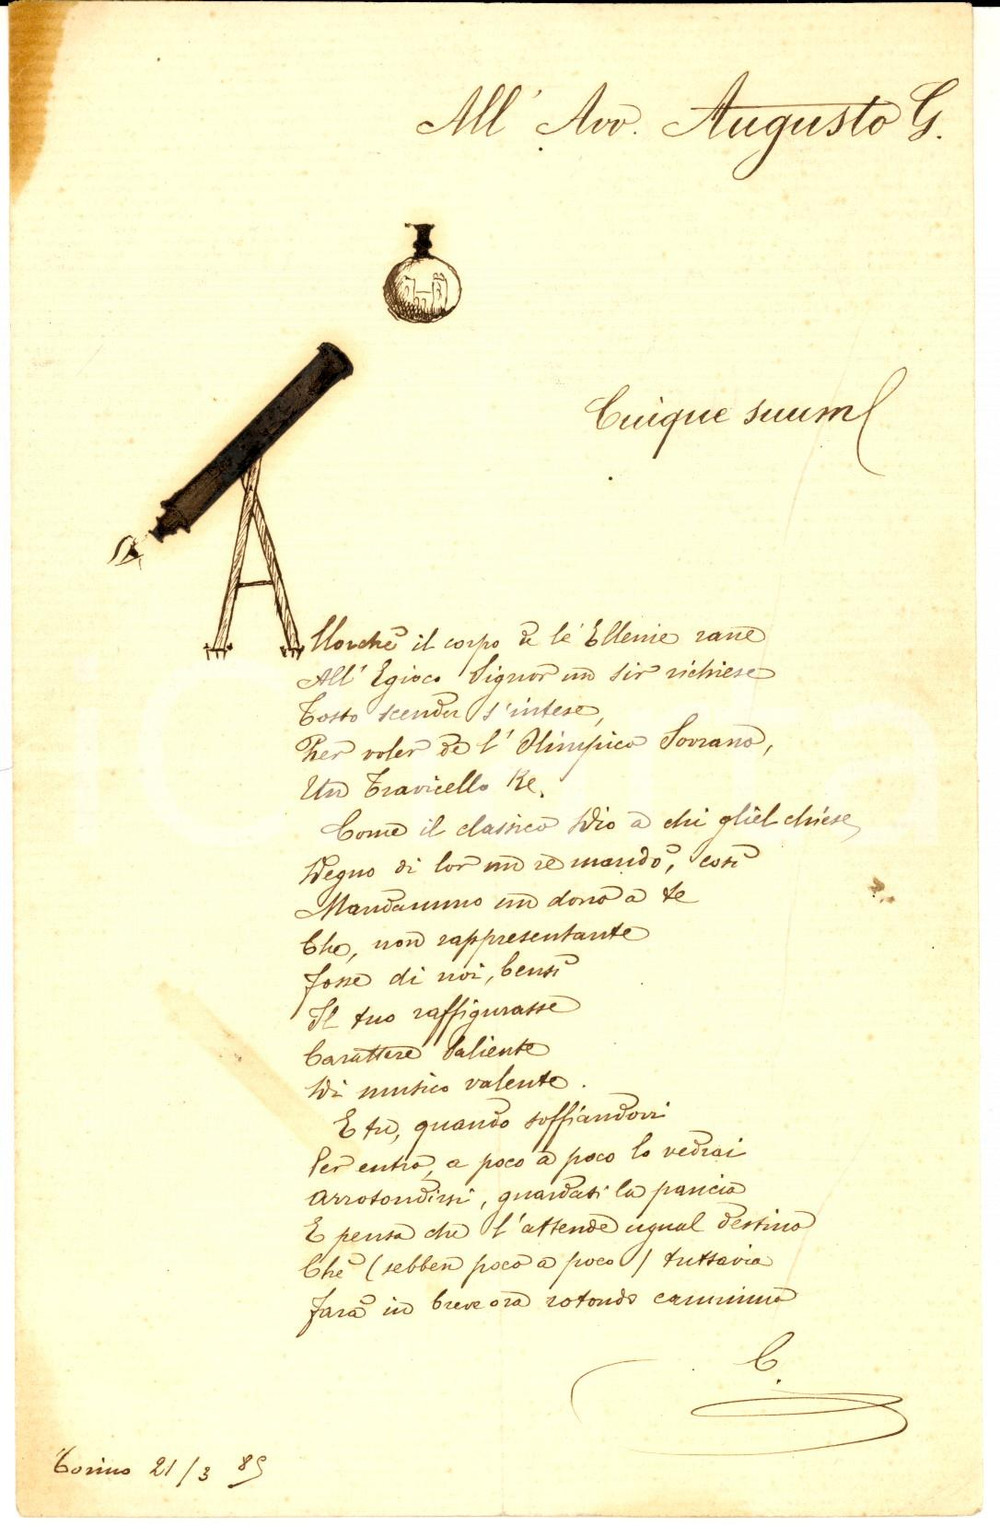 All' Avv. Augusto G.
Cuique suum
Allorchè il corpo de le Ellenie rane
All' Egioco Signor un sir richiese
Tosto scender s'intese,
Per voler de l'Olimpico Sovrano,
Un Travicello Re.
Come il classico Dio a chi gliel chiese,
Degno di lor un re mandò, così
Mandammo un dono a te
Che, non rappresentante
Fosse di noi, bensì
Il tuo raffigurasse
Carattere saliente
Di musico valente.
E tu, quando soffiandovi
Per entro, a poco a poco lo vedrai
Arrotondirsi, guardati la pancia
E pensa che l'attende ugual destino
Chè (sebben poco a poco) tuttavia
Farà in breve ora rotondo cammino
C.
Torino 21/3 85